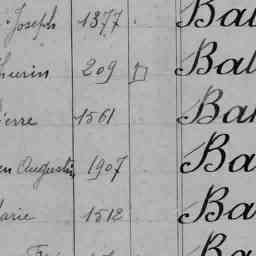 Joseph 1377 Bal
thurin 209 □ Bal
ierre 1561 Bal
en Augustin 1907 Ba
arie 1512 Ba
Ba